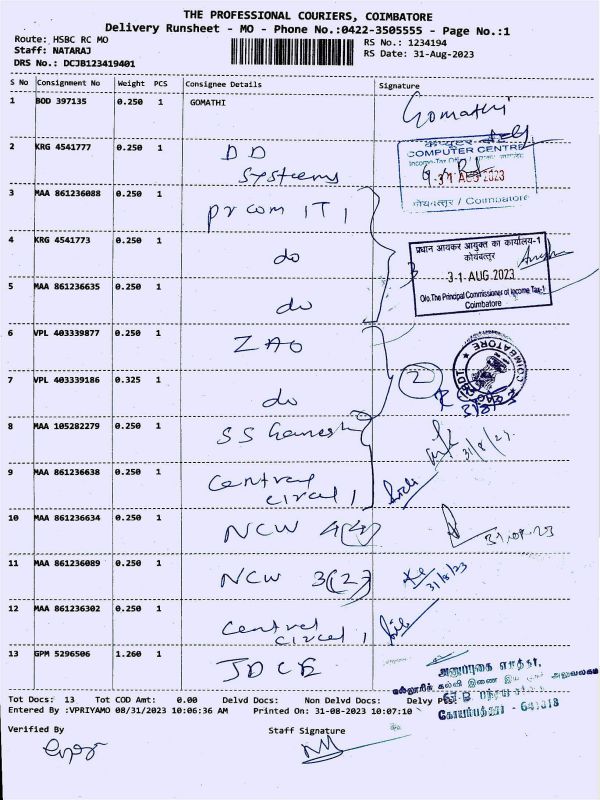 THE PROFESSIONAL COURIERS, COIMBATORE
Delivery Runsheet - MO - Phone No.:0422-3505555 - Page No.:1
Route: HSBC RC MO
RS No.: 1234194
Staff: NATARAJ
RS Date: 31-Aug-2023
DRS No.: DCJB123419401
S No Consignment No Weight PCS Consignee Details Signature
1 BOD 397135 0.250 1 GOMATHI Gomathi
2 KRG 4541777 0.250 1 DD Systems
COMPUTER CENTRE
31 AUG 2023
कोयंबत्तूर / Coimbatore
3 MAA 861236088 0.250 1 pr com IT 1
4 KRG 4541773 0.250 1 do
प्रधान आयकर आयुक्त का कार्यालय-1
कोयंबत्तूर
31 AUG 2023
O/o. The Principal Commissioner of Income Tax-1
Coimbatore
5 MAA 861236635 0.250 1 do
6 VPL 403339877 0.250 1 ZAO
COIMBATORE
7 VPL 403339186 0.325 1 do 2
8 MAA 105282279 0.250 1 SS Ganesh 31/8/23
9 MAA 861236638 0.250 1 Central circel 1
10 MAA 861236634 0.250 1 NCW 4(4) 31.08.23
11 MAA 861236089 0.250 1 NCW 3(2) 31/8/23
12 MAA 861236302 0.250 1 Central circel 1
13 GPM 5296506 1.260 1 JDCE
கோயம்புத்தூர் - 641018
Tot Docs: 13 Tot COD Amt: 0.00 Delvd Docs: Non Delvd Docs: Delvy
Entered By :VPRIYAMO 08/31/2023 10:06:36 AM Printed On: 31-08-2023 10:07:10
Verified By Staff Signature